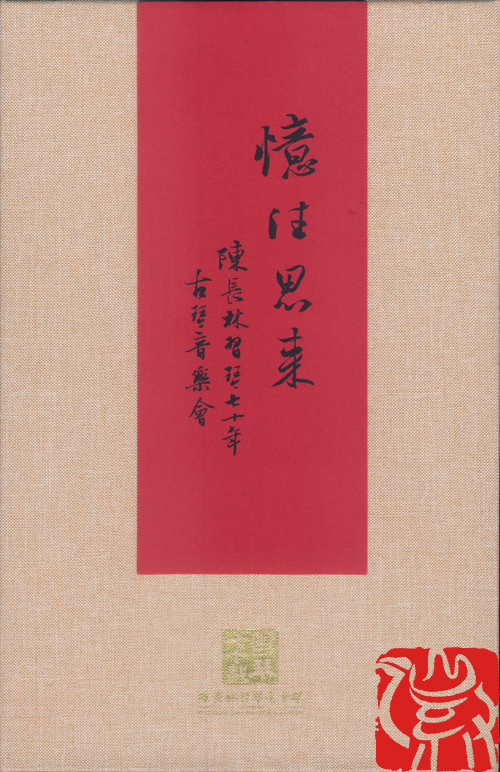 憶往思来
陳長林習琴七十年
古琴音樂會